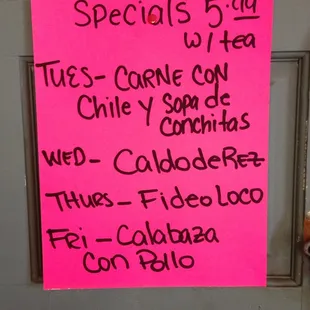 Specials 5.99
w/tea
TUES- CARNE CON
Chile y Sopa de
Conchitas
WED- CaldodeRez
THURS- Fideo Loco
FRi- Calabaza
Con Pollo